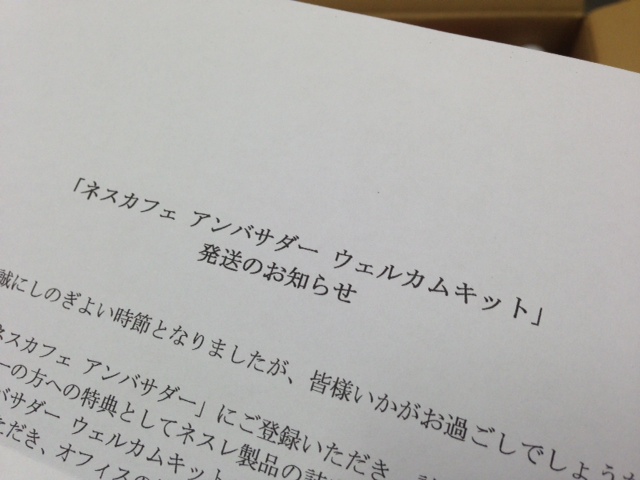 「ネスカフェ アンバサダー ウェルカムキット」
発送のお知らせ
誠にしのぎよい時節となりましたが、皆様いかがお過ごしでしょうか
ネスカフェ アンバサダー」にご登録いただき
ーの方への特典としてネスレ製品の詰
バサダー ウェルカムキット
ただき、オフィスの